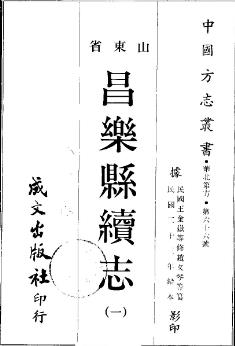 中國方志叢書・華北地方・第六十六號
據民國王金嶽等修趙文琴等纂
民國二十年鉛本影印
山東省
昌樂縣續志
(一)
成文出版社印行